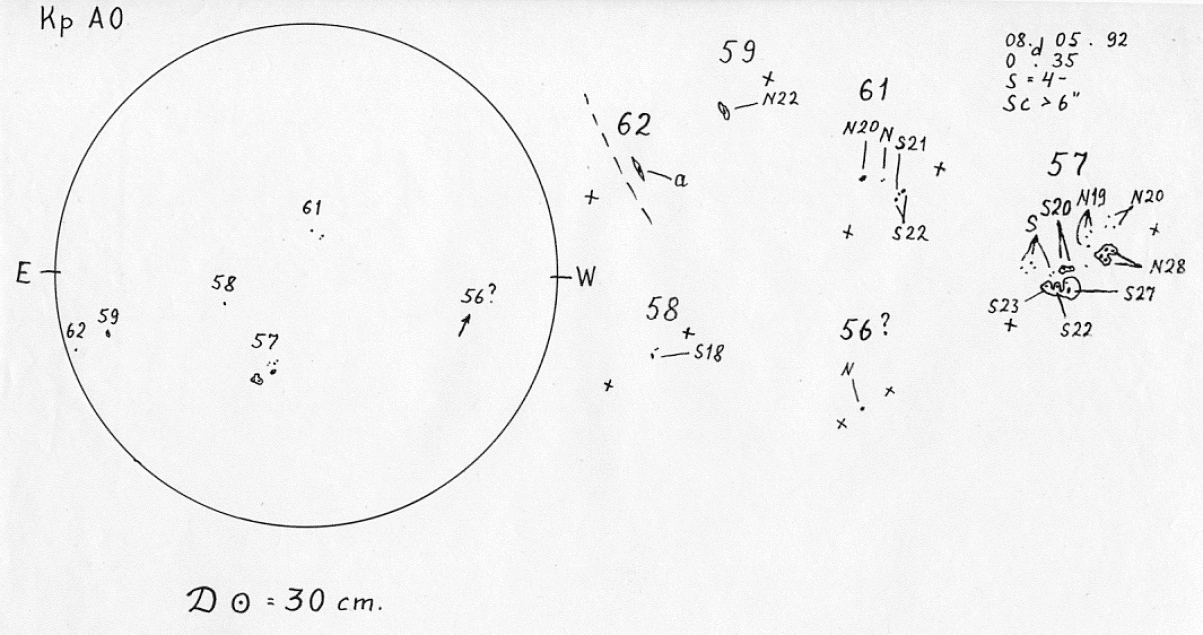 Кр АО
08.d 05 . 92
0 . 35
S = 4-
Sc > 6"
59
N22
62
a
61
N20 N S21
S22
57
S S20 N19 N20
N28
S23 S27
S22
61
E W
58
56?
62 59
57
58
S18
56?
N
D ⊙ = 30 cm.